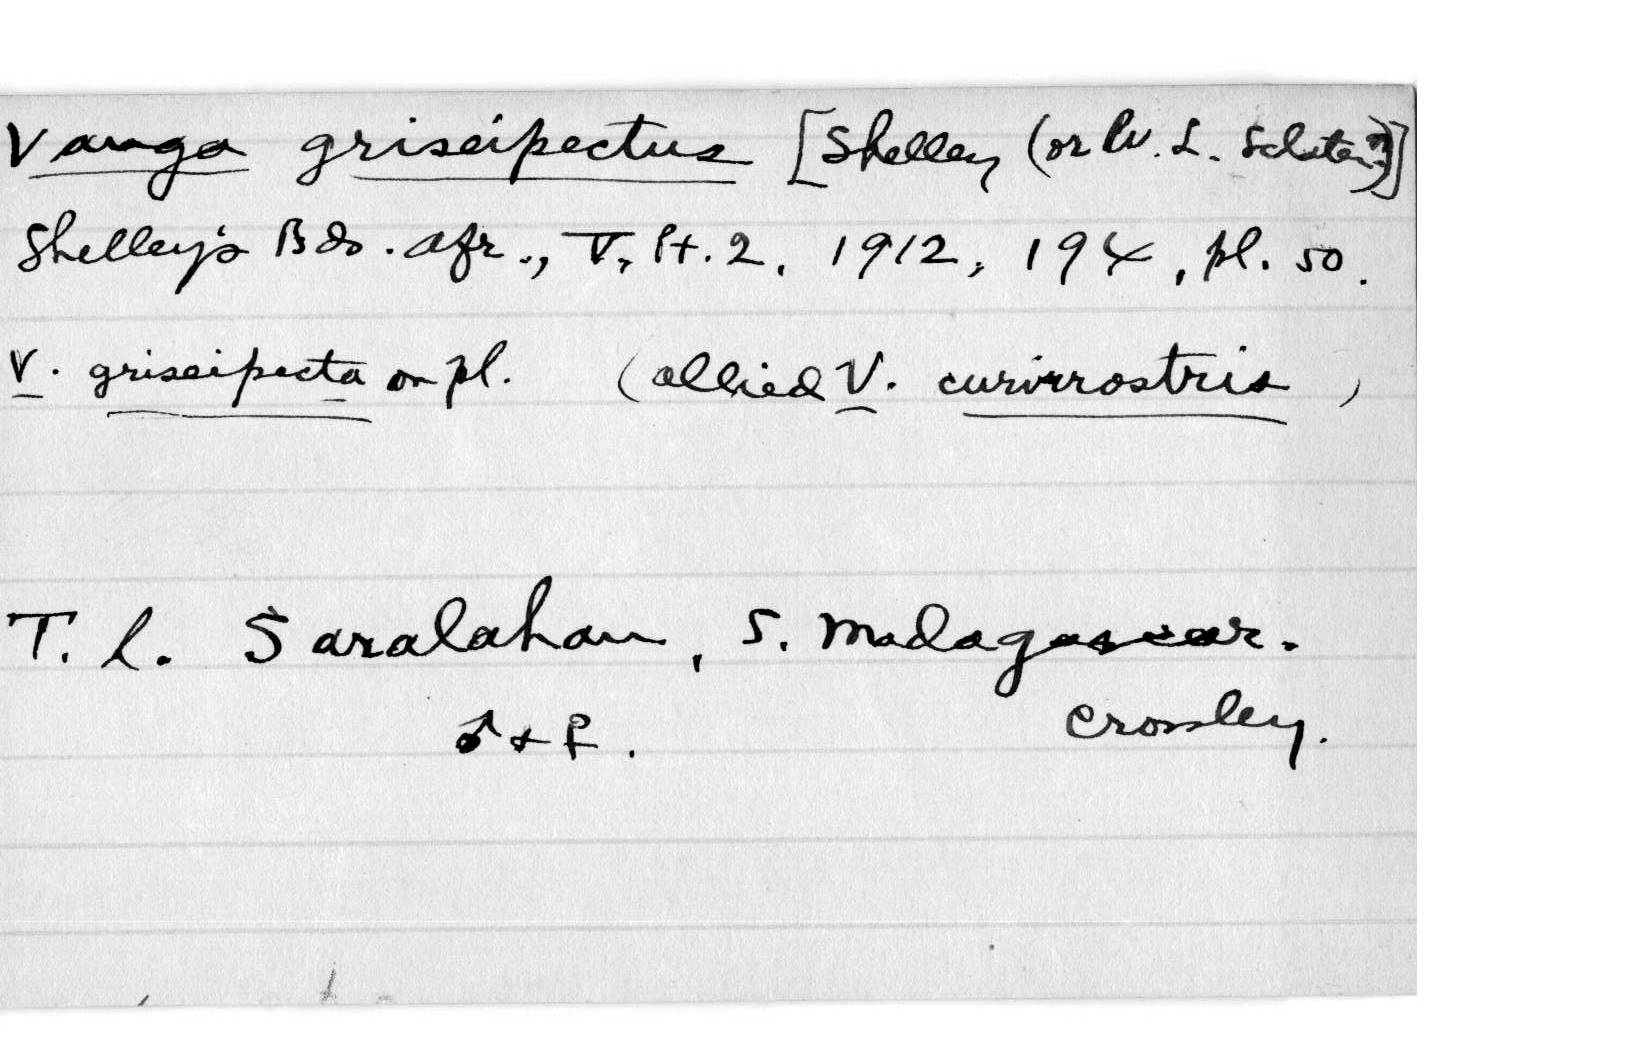 Vanga griseipectus [Shelley (or W. L. Sclater?)]
Shelley's Bds. Afr., V, Pt. 2, 1912, 194, pl. 50.
V. griseipecta on pl. (allied V. curvirostris)
T. l. Saralahan, S. Madagascar.
Crossley.
♂ + ♀.